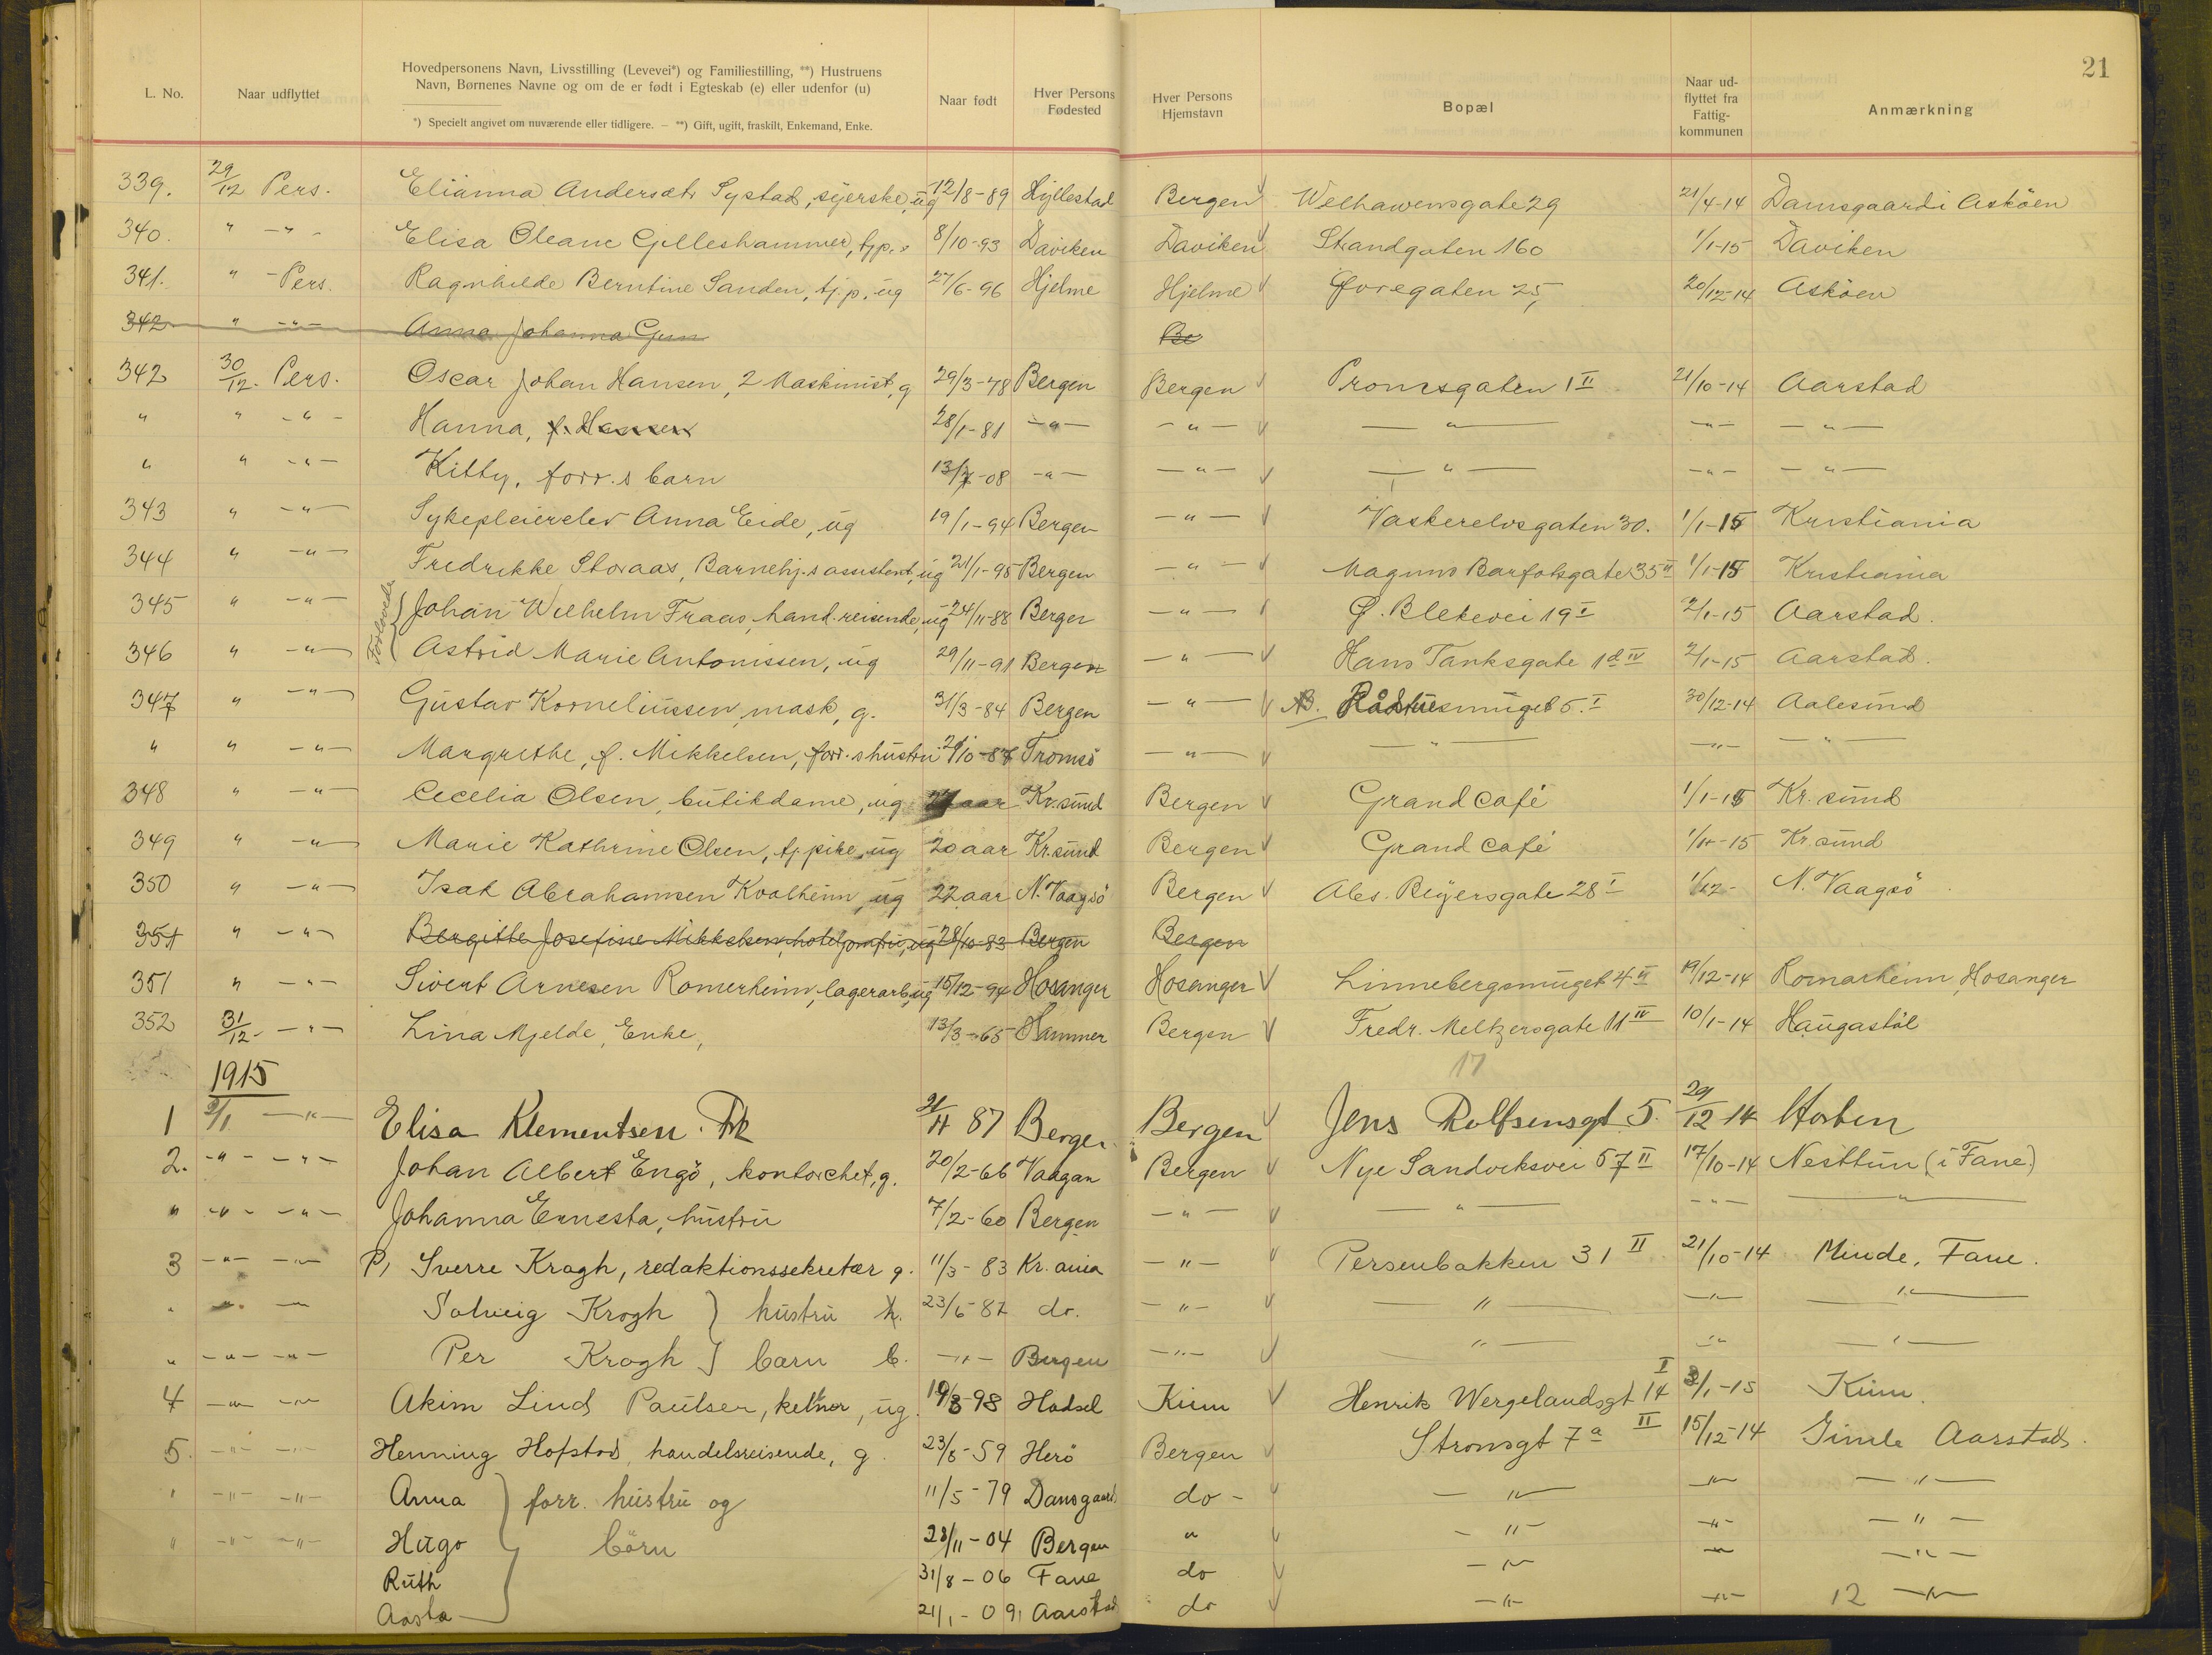 21
L. No. Naar udflyttet Hovedpersonens Navn, Livsstilling (Levevei*) og Familiestilling, **) Hustruens Navn, Børnenes Navne og om de er født i Egteskab (e) eller udenfor (u) Naar født Hver Persons Fødested Hver Persons Hjemstavn Bopæl Naar ud-flyttet fra Fattig-kommunen Anmærkning
*) Specielt angivet om nuværende eller tidligere. — **) Gift, ugift, fraskilt, Enkemand, Enke.
339. 29/12 Pers. Elianna Andersdtr Systad, syerske, ug 12/8-89 Hyllestad Bergen Welhavensgate 29 21/4-14 Damsgaard i Asköen
340. " -"- Elisa Oleane Gilleshammer, tjp., 8/10-93 Daviken Daviken Strandgaten 160 1/1-15 Daviken
341. " - Pers. Ragnhilde Berntine Sanden, tj.p, ug 27/6-96 Hjelme Hjelme Øvregaten 25, 20/12-14 Asköen
342 " -"- Anna Johanna Be
342 30/12. Pers. Oscar Johan Hansen, 2 Maskinist, g 29/3-78 Bergen Bergen Promsgaten 1 II 21/10-14 Aarstad
" " -"- Hanna, f. Hansen 28/1-81 -"- -"- -"- -"- -"-
" " -"- Kitty, forr.s barn 13/7-08 -"- -"- -"- -"- -"-
343 " -"- Sykepleierelev Anna Eide, ug 19/1-94 Bergen -"- Vaskerelvsgaten 30. 1/1-15 Kristiania
344 " -"- Fredrikke Storaas, Barnehj.s assistent, ug 21/1-95 Bergen -"- Magnus Barfotsgate 35 II 1/1-15 Kristiania
Forlovede
345 " -"- Johan Wilhelm Fraas, hand.reisende, ug 24/11-88 Bergen -"- Ø. Blekevei 19 I 2/1-15 Aarstad.
346 " -"- Astrid Marie Antonissen, ug 29/11-91 Bergen -"- Hans Tanksgate 1d IV 2/1-15 Aarstad.
347 " -"- Gustav Korneliussen, mask, g. 31/3-84 Bergen -"- Rådstuesmuget 5. I 30/12-14 Aalesund
" " -"- Margrethe, f. Mikkelsen, forr.s hustru Tromsö -"- -"- -"- -"-
348 " -"- Cecelia Olsen, butikdame, ug aar Kr.sund Bergen Grand Café 1/1-15 Kr.sund
349 " -"- Marie Kathrine Olsen, tj pike, ug 20 aar Kr.sund Bergen Grand Café 1/1-15 Kr.sund
350 " -"- Isak Abrahamsen Kvalheim, ug 22 aar N. Vaagsö Bergen Abs. Beyersgate 28 I 1/12- N. Vaagsö
351 " -"- Bergitte Josefine Mikkelsen, hoteljomfru, ug 28/10-83 Bergen Bergen
351 " -"- Sivert Arnesen Romerheim, lagerarb, ug 15/12-94 Hosanger Hosanger Linnebergsmuget 4 II 19/12-14 Romarheim, Hosanger
352 31/12. -"- Lina Mjelde, Enke, 13/3-65 Hammer Bergen Fredr. Meltzersgate 11 IV 10/1-14 Haugastöl
1915 17
1 2/1 -"- Elisa Klementsen. 87 Bergen. Bergen Jens Rolfsensgt. 5. 29/12-14 Horten
2. -"- -"- Johan Albert Engö, kontorchef, g. 20/2-66 Vaagan Bergen Nye Sandviksvei 57 II 17/10-14 Nesttun (i Fane)
" -"- -"- Johanna Ernesta, hustru 7/2-60 Bergen -"- -"- -"- -"-
3 -"- -"- P, Sverre Krogh, redaktionssekretær g. 11/3-83 Kr.ania -"- Persenbakken 31 II 21/10-14 Minde, Fane.
" -"- -"- Solveig Krogh } hustru h. 23/6-87 do. -"- -"- -"- -"-
" -"- -"- Per Krogh } barn b. -"- Bergen -"- -"- -"- -"-
4 -"- -"- Akim Lind Paulsen, kelner, ug. 19/8-98 Hadsel Kinn Henrik Wergelandsgt 14 I 3/1-15 Kinn.
5. -"- -"- Henning Hofstad, handelsreisende, g. 23/8-59 Herö Bergen Stromsgt 7a II 15/12-14 Gimle Aarstad.
" -"- -"- Anna } forr. hustru og 11/5-79 Damsgaard do- -"- -"- -"-
" -"- -"- Hugo börn 28/11-04 Bergen " -"- -"- -"-
Ruth 31/8-06 Fane do -"- -"- -"-
Aasta 21/1-09, Aarstad do -"- -"- 12 -"-